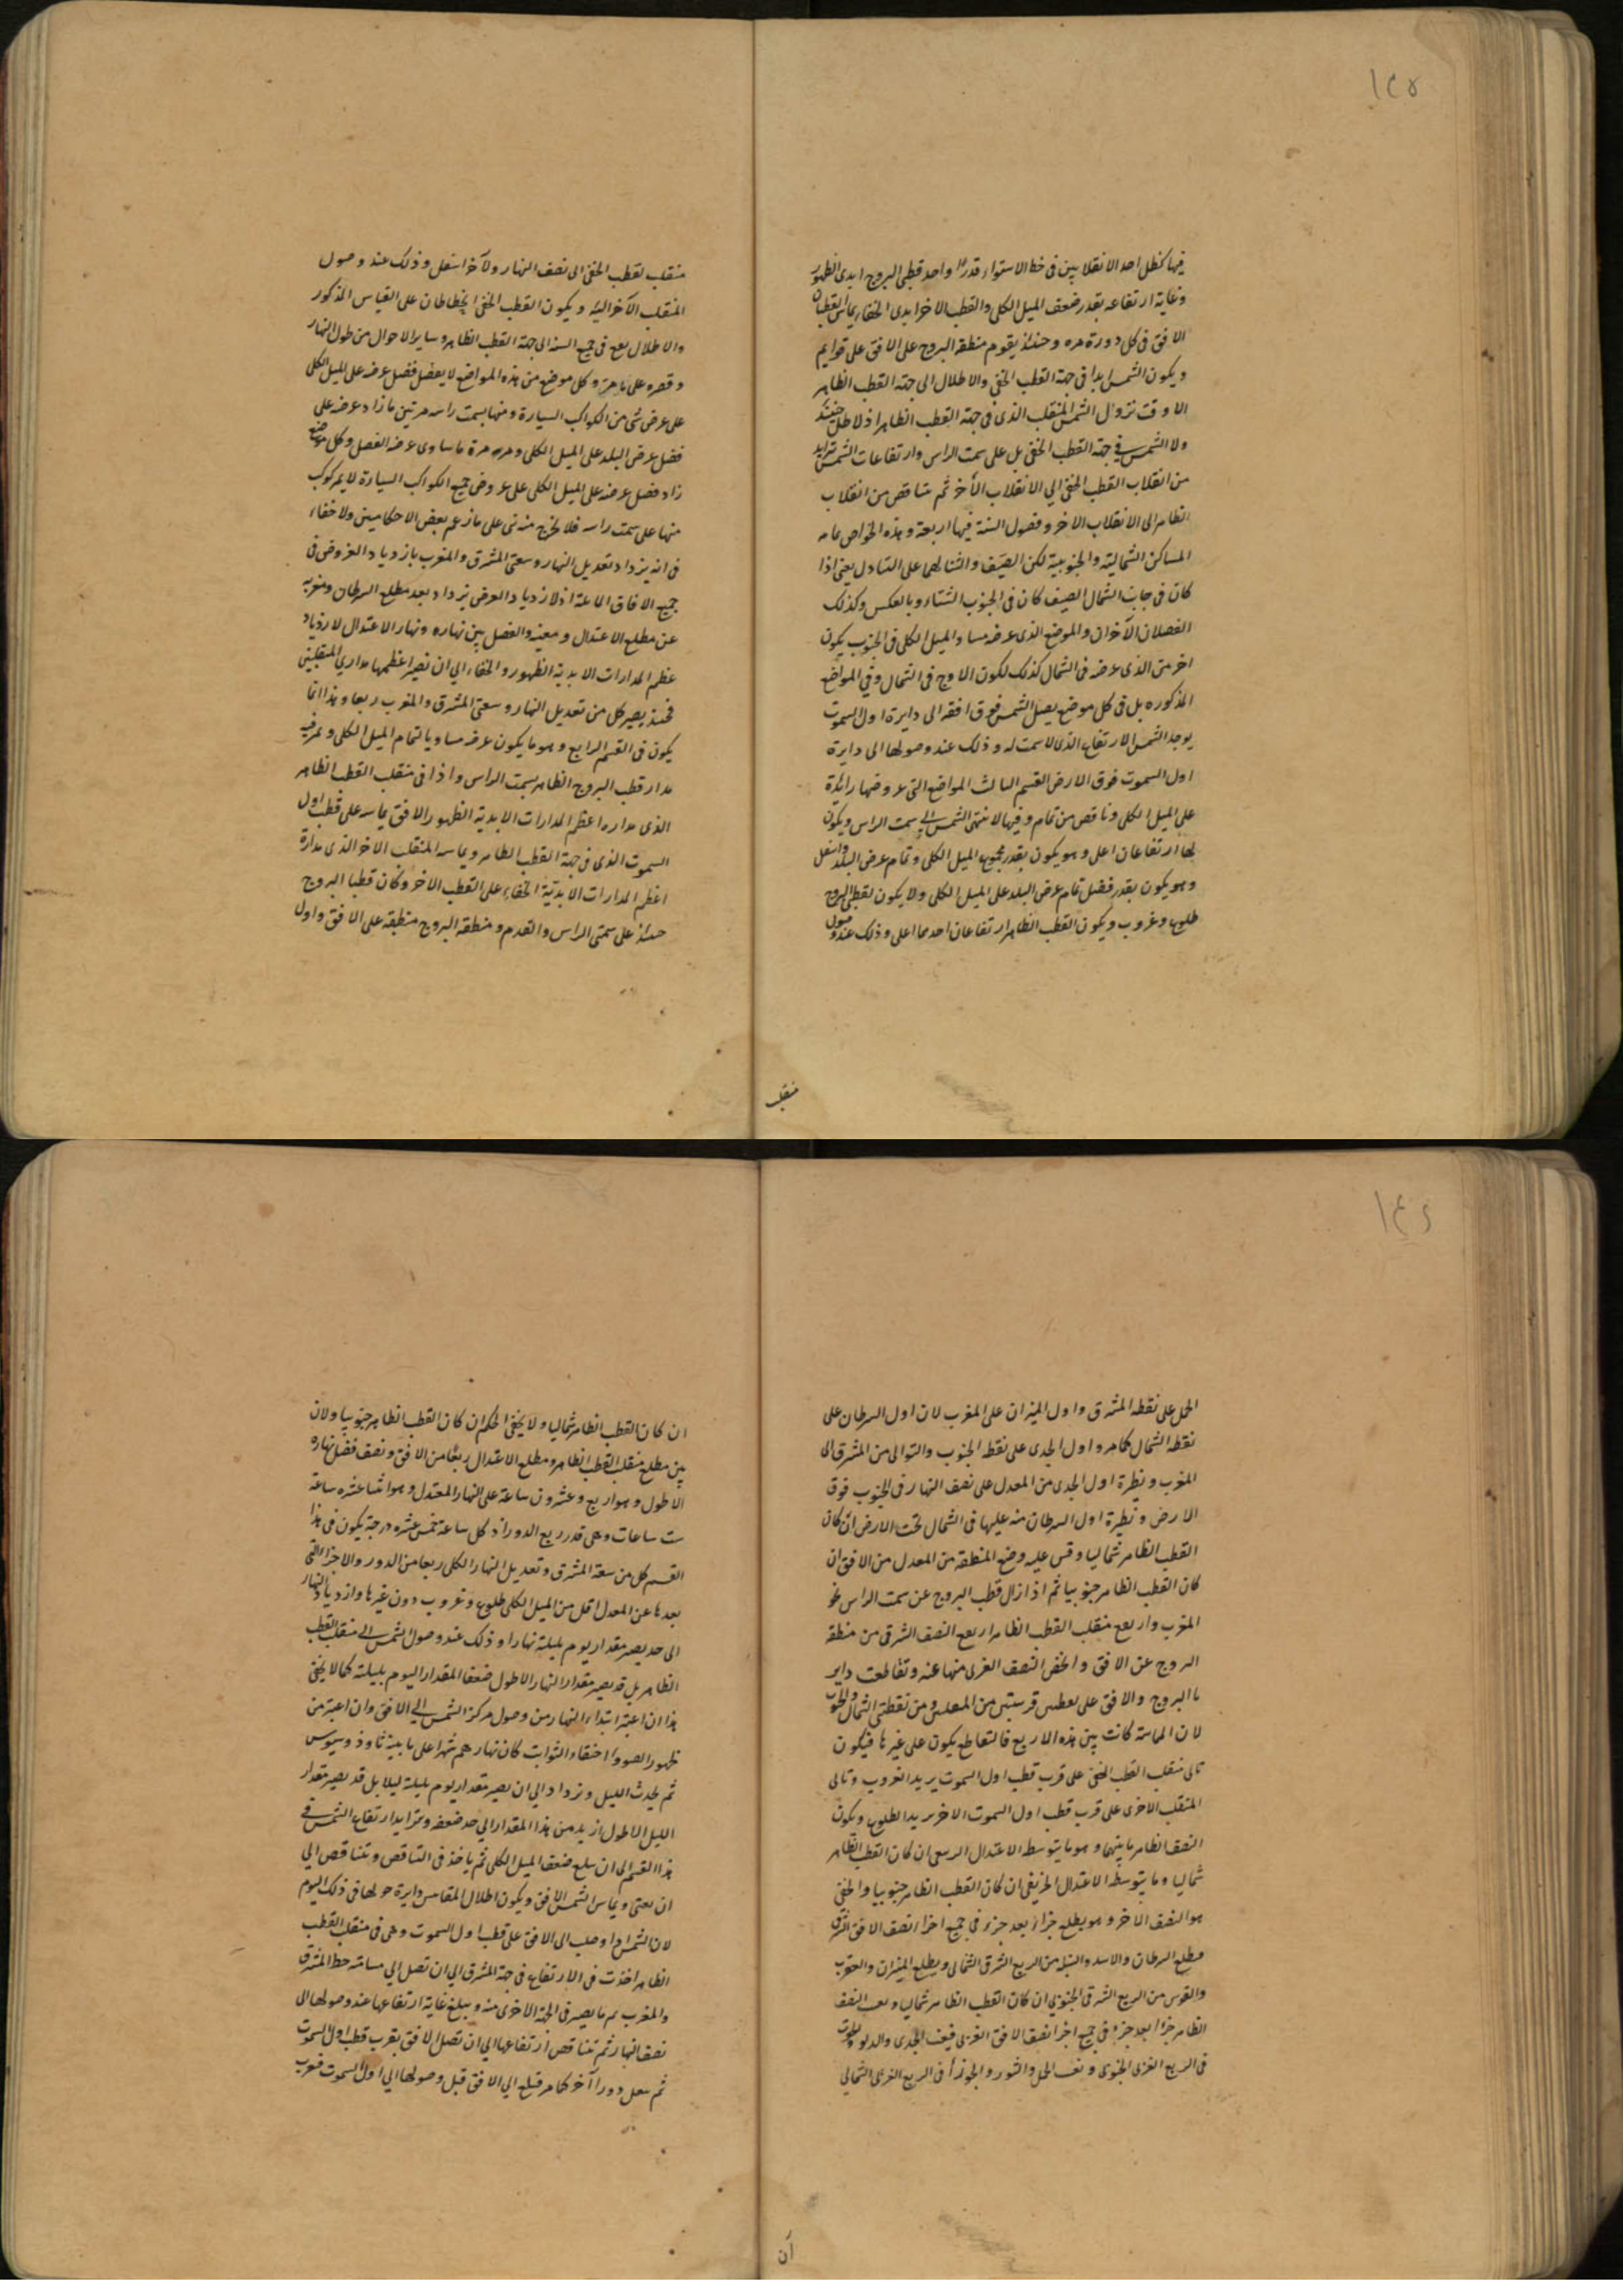 ١٤٥
فيها كظل احد الانقلابين في خط الاستواء قدرا واحد قطبي البروج ابدي الظهور
وغاية ارتفاعه بقدر ضعف الميل الكلي والقطب الاخر ابدي الخفاء يماس القطبان
الافق في كل دورة مرة وحينئذ يقوم منطقة البروج على الافق على قوايم
ويكون الشمس ابدا في جهة القطب الخفي والاظلال الى جهة القطب الظاهر
الا وقت نزول الشمس المنقلب الذي في جهة القطب الظاهر اذ لا ظل حينئذ
ولا الشمس في جهة القطب الخفي بل على سمت الراس وارتفاعات الشمس تزايد
من انقلاب القطب الخفي الي الانقلاب الآخر ثم تناقص من انقلاب
الظاهر الى الانقلاب الاخر وفصول السنة فيها اربعة وهذه الخواص عامه
المساكن الشمالية والجنوبية لكن الصيف والشتا لهما على التبادل يعني اذا
كان في جانب الشمال الصيف كان في الجنوب الشتاء وبالعكس وكذلك
الفصلان الآخران والموضع الذي عرضه مساو للميل الكلي في الجنوب يكون
احر من الذي عرضه في الشمال كذلك لكون الاوج في الشمال وفي المواضع
المذكوره بل في كل موضع يصل الشمس فوق افقه الى دايرة اول السموت
يوجد الشمس الارتفاع الذي لا سمت له وذلك عند وصولها الى دايرة
اول السموت فوق الارض القسم الثالث المواضع التي عروضها زائدة
على الميل الكلي وناقص من تمام وفيها لا ينتهي الشمس الي سمت الراس ويكون
لها ارتفاعان اعلى وهو يكون بقدر مجموع الميل الكلي وتمام عرض البلد واسفل
وهو يكون بقدر فضل تمام عرض البلد على الميل الكلي ولا يكون لقطبي البروج
طلوع وغروب ويكون القطب الظاهر ارتفاعان احدهما اعلى وذلك عند وصول
منقلب
منقلب لقطب الخفي الى نصف النهار والآخر اسفل وذلك عند وصول
المنقلب الآخر اليه ويكون القطب الخفي انحطاطان على القياس المذكور
والاظلال يقع في جميع السنه الى جهة القطب الظاهر وساير الاحوال من طول النهار
وقصره على ما مر وكل موضع من هذه المواضع لا يفضل فضل عرضه على الميل الكلي
على عرض شئ من الكواكب السيارة ومنها يسمت راسه مرتين ما زاد عرضه على
فضل عرض البلد على الميل الكلي ومره مرة ما ساوى عرضه الفضل وكل موضع
زاد فضل عرضه على الميل الكلي على عروض جميع الكواكب السيارة لا يمر كوكب
منها على سمت راسه فلا يخرج منه نبي على ما زعم بعض الاحكاميين ولا خفاء
في انه يزداد تعديل النهار وسعتي المشرق والمغرب بازدياد العروض في
جميع الافاق المايلة اذ لازدياد العرض يزداد بعد مطلع السرطان ومغربه
عن مطلع الاعتدال ومغيبه والفضل بين نهاره ونهار الاعتدال لازدياد
عظم المدارات الابدية الظهور والخفاء الي ان يصير اعظمها مداري المنقلبين
فحينئذ يصير كل من تعديل النهار وسعتي المشرق والمغرب ربعا وهذا انما
يكون في القسم الرابع وهو ما يكون عرضه مساويا لتمام الميل الكلي وتمر فيه
مدار قطب البروج الظاهر بسمت الراس واذا في منقلب القطب الظاهر
الذي مداره اعظم المدارات الابدية الظهور الافق يماسه على قطب اول
السموت الذي في جهة القطب الظاهر ويماسه المنقلب الاخر الذي مداره
اعظم المدارات الابدية الخفاء على القطب الاخر وكان قطبا البروج
حينئذ على سمتي الراس والقدم ومنطقة البروج منطبقة على الافق واول
١٤٦
الحمل على نقطة المشرق واول الميزان على المغرب لان اول السرطان على
نقطة الشمال كما مر واول الجدي على نقطة الجنوب والتوالى من المشرق الى
المغرب ونظيرة اول الجدي من المعدل على نصف النهار في الجنوب فوق
الارض ونظيرة اول السرطان منه عليها في الشمال تحت الارض ان كان
القطب الظاهر شماليا وقس عليه وضع المنطقة من المعدل من الافق ان
كان القطب الظاهر جنوبيا ثم اذا زال قطب البروج عن سمت الراس نحو
المغرب وارتفع منقلب القطب الظاهر ارتفع النصف الشرقي من منطقة
البروج عن الافق وانخفض النصف الغربي منها عنه وتقاطعت داير
تا البروج والافق على نقطتين قريبتين من المنقلبين ومن نقطتي الشمال والجنوب
لان المماسة كانت بين هذه الاربع فالتقاطع يكون على غيرها فيكون
تالي منقلب القطب الخفي على قرب قطب اول السموت يريد الغروب وتالي
المنقلب الاخرى على قرب قطب اول السموت الاخر يريد الطلوع ويكون
النصف الظاهر ما بينهما وهو ما يتوسط الاعتدال الربيعي ان كان القطب الظاهر
شماليا وما يتوسط الاعتدال الخريفي ان كان القطب الظاهر جنوبيا والخفي
هو النصف الآخر وهو يطلع جزأ بعد جزء في جميع اجزاء نصف الافق الشرقي
فيطلع السرطان والاسد والسنبلة من الربع الشرقي الشمالي ويطلع الميزان والعقرب
والقوس من الربع الشرقي الجنوبي ان كان القطب الظاهر شماليا ويغيب النصف
الظاهر جزءا بعد جزء في جميع اجزا نصف الافق الغربي فيغيب الجدي والدلو والحوت
في الربع الغربي الجنوبي ويغيب الحمل والثور والجوزا في الربع الغربي الشمالي
ان
ان كان القطب الظاهر شماليا ولا يخفى الحكم ان كان القطب الظاهر جنوبيا ولان
بين مطلع منقلب القطب الظاهر ومطلع الاعتدال ربعا من الافق ونصف فضل نهاره
الاطول وهو اربع وعشرون ساعة على النهار المعتدل وهو اثنا عشره ساعة
ست ساعات وهي قدر ربع الدور اذ كل ساعة خمس عشره درجة يكون في هذا
القسم كل من سعة المشرق وتعديل النهار الكلي ربعا من الدور والاجزاء التي
بعدها عن المعدل اقل من الميل الكلي طلوع وغروب دون غيرها وازدياد النهار
الى حد يصير مقدار يوم بليلة نهارا وذلك عند وصول الشمس الى منقلب القطب
الظاهر بل قد يصير مقدار النهار الاطول ضعف المقدار اليوم بليلته كما لا يخفى
هذا ان اعتبر ابتداء النهار من وصول مركز الشمس الي الافق وان اعتبر من
ظهور الضوء واختفاء الثوابت كان نهارهم شهرا على ما بينه ثاوذوسيوس
ثم يحدث الليل وتزداد الي ان يصير مقدار يوم بليلة ليلا بل قد يصير مقدار
الليل الاطول ازيد من هذا المقدار الي حد ضعفه وتزايد ارتفاع الشمس في
هذا القسم الى ان يبلغ ضعف الميل الكلي ثم ياخذ في التناقص وتتناقص الي
ان يفنى ويماس الشمس الافق ويكون اظلال المقاييس دايرة حولها في ذلك اليوم
لان الشمس اذا وصلت الى الافق على قطب اول السموت وهي في منقلب القطب
الظاهر اخذت في الارتفاع في جهة المشرق الي ان تصل الي مسامتة خط المشرق
والمغرب ثم ما يصير في الجهة الاخرى منه ويبلغ غاية ارتفاعها عند وصولها الى
نصف النهار ثم تتناقص ارتفاعها الي ان تصل الافق بقرب قطب اول السموت
ثم يفعل دورا آخر كما مر فيبلغ الي الافق قبل وصولها الي اول السموت فتغرب